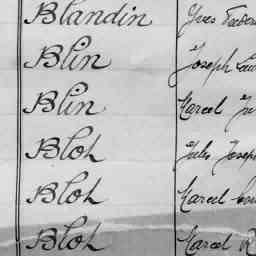 Blandin Yves
Blin Joseph
Blin Marcel
Bloh Jules Joseph
Bloh Marcel
Bloh Marcel